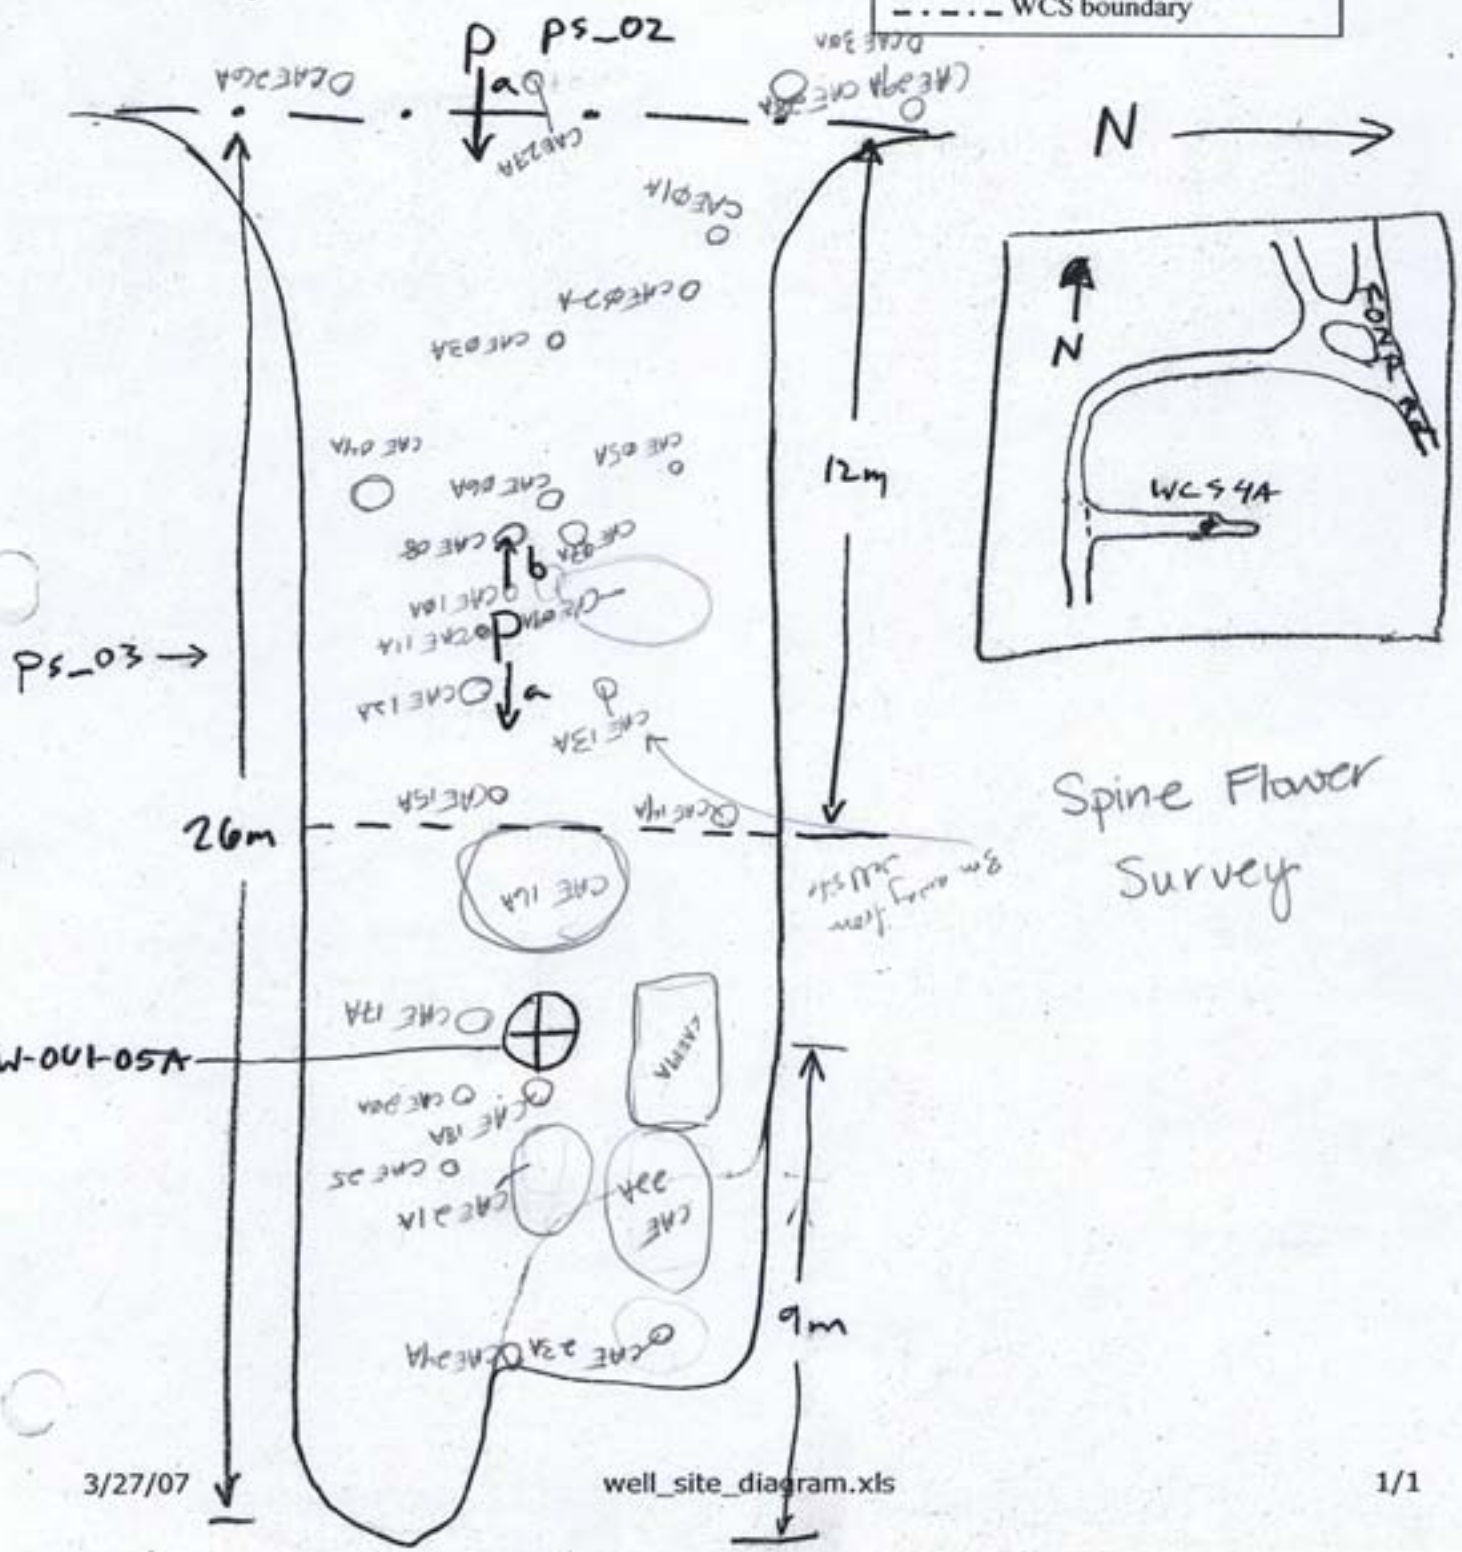 WCS boundary
P ps_02
a
CAE30A
CAE26A
CAE29A
CAE27A
N
CAE01A
CAE02A
CAE03A
N
POND RD
WCS 4A
CAE 04A
CAE 05A
CAE 06A
12m
CAE 08
b
CAE 10A
CAE 11A
P
ps_03
CAE 12A
a
CAE 13A
CAE 15A
CAE 14A
26m
3m away from
well site
Spine Flower
Survey
CAE 16A
CAE 17A
CAE19A
W-OU1-05A
CAE20A
CAE 18A
CAE 25
CAE 21A
CAE
22A
CAE24A
CAE 23A
9m
3/27/07
well_site_diagram.xls
1/1